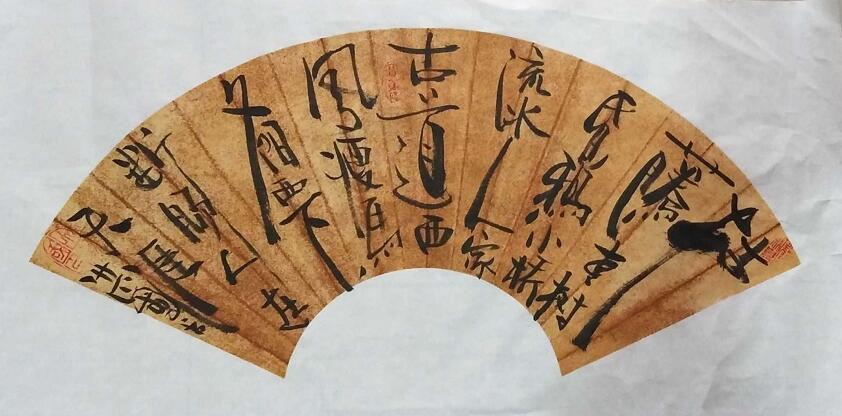 枯
藤老树
昏鸦小桥
流水人家
古道西
风瘦马
夕阳西下
断肠人在
天涯